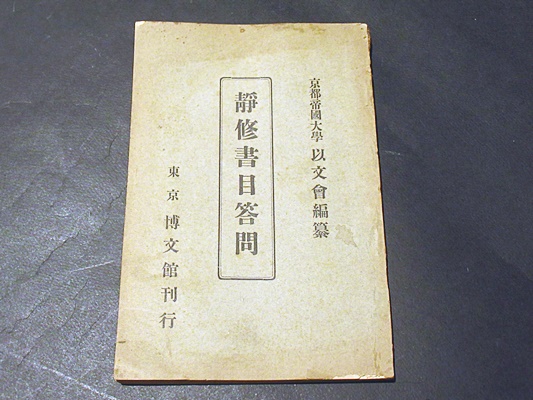 京都帝國大學 以文會編纂
靜修書目答問
東京 博文館刊行